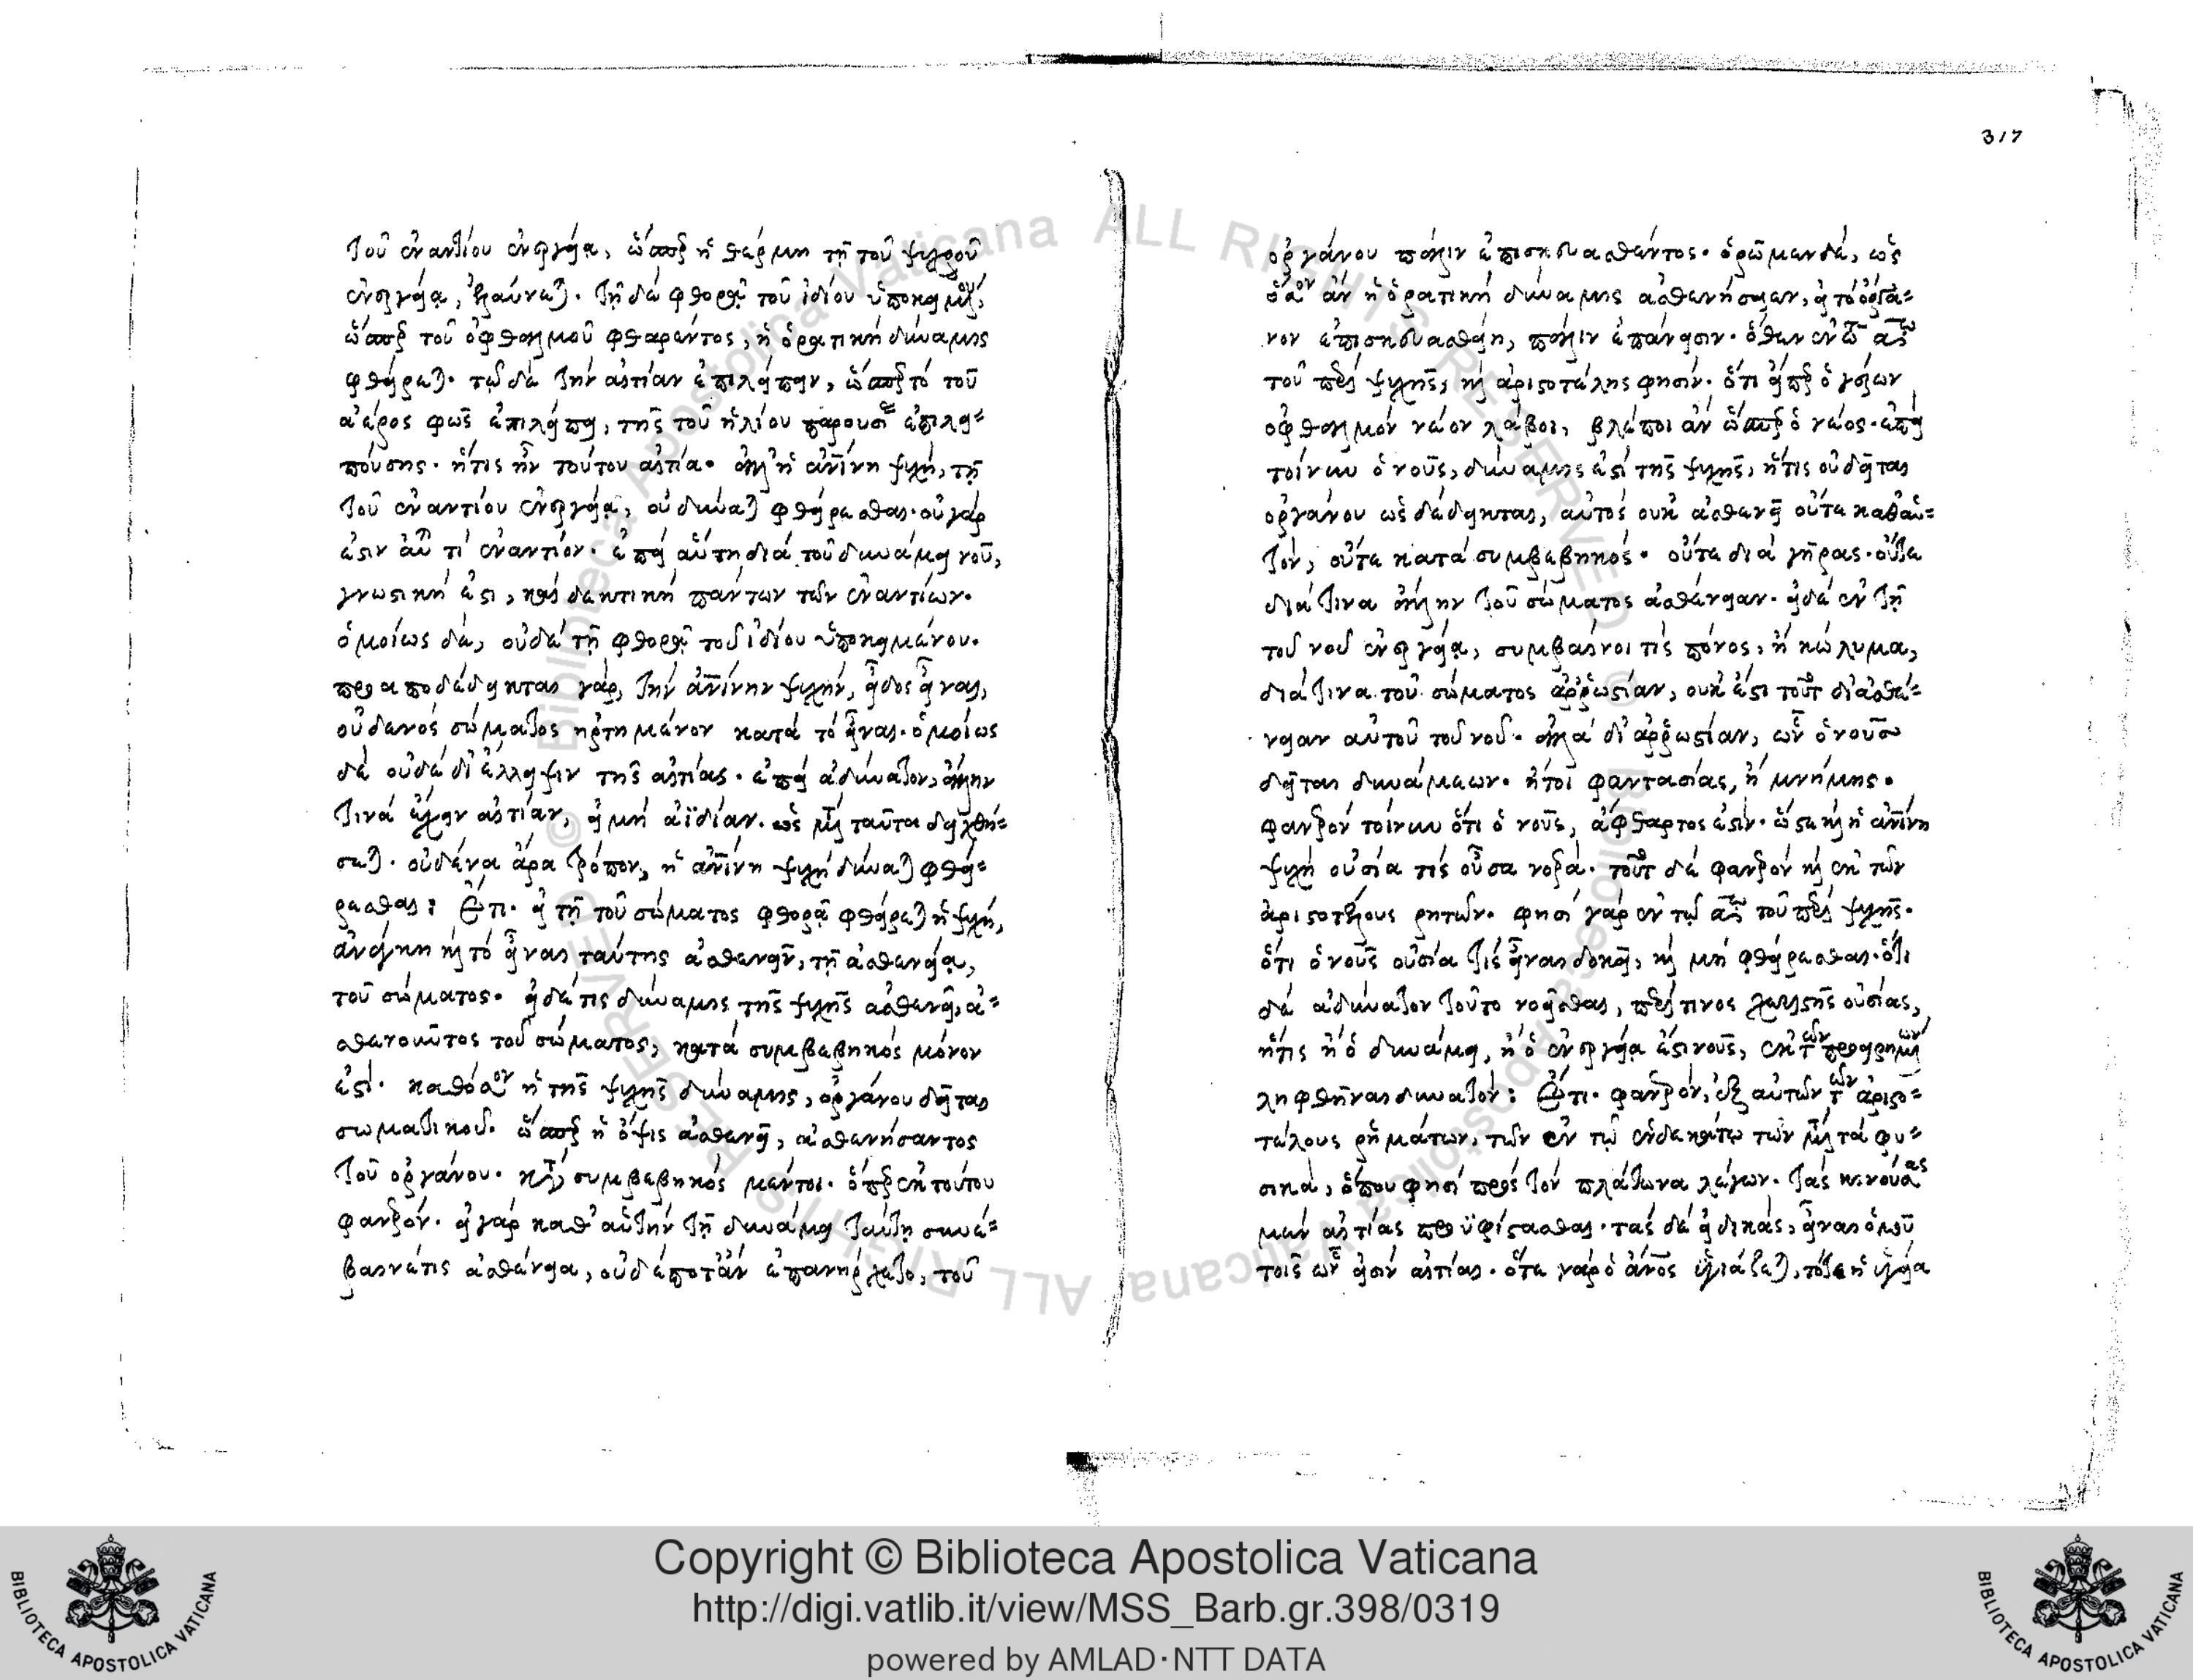 317
τοῦ ἐναντίου ἐνεργείᾳ, ὥσπερ ἡ θέρμη τῇ τοῦ ψυχροῦ
ἐνεργείᾳ, ἐλαύνεται. τῇ δὲ φθορᾷ τοῦ ἰδίου ὑποκειμένου,
ὥσπερ τοῦ ὀφθαλμοῦ φθαρέντος, ἡ ὁρατικὴ δύναμις
φθείρεται. τῷ δὲ τὴν αἰτίαν ἐπιλείπειν, ὥσπερ τὸ τοῦ
ἀέρος φῶς ἐπιλείπει, τῆς τοῦ ἡλίου παρουσίας ἐπιλει=
πούσης. ἥτις ἦν τούτου αἰτία. ἀλλ' ἡ ἀνίνη ψυχὴ, τῇ
τοῦ ἐναντίου ἐνεργείᾳ, οὐ δύναται φθείρεσθαι. οὐ γάρ
ἐστιν αὐτῇ τὶ ἐναντίον. ἐπεὶ αὕτη διὰ τοῦ δυνάμει νοῦ,
γνωστική ἐστι, καὶ δεκτικὴ πάντων τῶν ἐναντίων.
ὁμοίως δὲ, οὐδὲ τῇ φθορᾷ τοῦ ἰδίου ὑποκειμένου.
προαποδέδεικται γὰρ, τὴν ἀνίνην ψυχὴν, εἶδος εἶναι,
οὐδενὸς σώματος ἠρτημένον κατὰ τὸ εἶναι. ὁμοίως
δὲ οὐδὲ δι' ἔλλειψιν τῆς αἰτίας. ἐπεὶ ἀδύνατον, ἄλλην
τινὰ ἔχειν αἰτίαν, εἰ μὴ ἀΐδιαν. ὡς μετὰ ταῦτα δειχθή=
σεται. οὐδένα ἄρα τρόπον, ἡ ἀνίνη ψυχὴ δύναται φθεί=
ρεσθαι: Ἔτι. εἰ τῇ τοῦ σώματος φθορᾷ φθείρεται ἡ ψυχὴ,
ἀνάγκη καὶ τὸ εἶναι ταύτης ἀσθενεῖν, τῇ ἀσθενείᾳ,
τοῦ σώματος. εἰ δέ τις δύναμις τῆς ψυχῆς ἀσθενεῖ, ἀ=
σθενοῦντος τοῦ σώματος, κατὰ συμβεβηκὸς μόνον
ἐστί. καθόσον ἡ τῆς ψυχῆς δύναμις, ὀργάνου δεῖται
σωματικοῦ. ὥσπερ ἡ ὄψις ἀσθενεῖ, ἀσθενήσαντος
τοῦ ὀργάνου. κατὰ συμβεβηκὸς μέντοι. ὅπερ ἐκ τούτου
φανερόν. εἰ γὰρ καθ' αὑτὴν τῇ δυνάμει ταύτῃ συνέ=
βαινέ τις ἀσθένεια, οὐδέποτ' ἂν ἐπανήρχετο, τοῦ
ὀργάνου πάλιν ἐπισκευασθέντος. ὁρῶμεν δὲ, ὡς
ὅσον ἂν ἡ ὁρατικὴ δύναμις ἀσθενήσειεν, εἰ τὸ ὄργα=
νον ἐπισκευασθείη, πάλιν ἐπάνεισιν. ὅθεν ἐν τῷ αῳ
τοῦ περὶ ψυχῆς, καὶ ἀριστοτέλης φησίν. ὅτι εἴπερ ὁ γέρων
ὀφθαλμὸν νέον λάβοι, βλέποι ἂν ὥσπερ ὁ νέος. ἐπεὶ
τοίνυν ὁ νοῦς, δύναμις ἐστὶ τῆς ψυχῆς, ἥτις οὐ δεῖται
ὀργάνου ὡς δέδεικται, αὐτὸς οὐκ ἀσθενεῖ οὔτε καθ' αὑ=
τὸν, οὔτε κατὰ συμβεβηκός. οὔτε διὰ γῆρας. οὔτε
διά τινα ἄλλην τοῦ σώματος ἀσθένειαν. εἰ δὲ ἐν τῇ
τοῦ νοῦ ἐνεργείᾳ, συμβαίνοι τὶς πόνος, ἢ κώλυμα,
διά τινα τοῦ σώματος ἀρρωστίαν, οὐκ ἔστι τοῦτο δι' ἀσθέ=
νειαν αὐτοῦ τοῦ νοῦ. ἀλλὰ δι' ἀρρωστίαν, ὧν ὁ νοῦς
δεῖται δυνάμεων. ἤτοι φαντασίας, ἢ μνήμης.
φανερὸν τοίνυν ὅτι ὁ νοῦς, ἄφθαρτος ἐστίν. ὥστε καὶ ἡ ἀνίνη
ψυχὴ οὐσία τὶς οὖσα νοερά. τοῦτο δὲ φανερὸν καὶ ἐκ τῶν
ἀριστοτέλους ρητῶν. φησὶ γὰρ ἐν τῷ αῳ τοῦ περὶ ψυχῆς.
ὅτι ὁ νοῦς οὐσία τὶς εἶναι δοκεῖ, καὶ μὴ φθείρεσθαι. ὅτι
δὲ ἀδύνατον τοῦτο νοεῖσθαι, περί τινος χωριστῆς οὐσίας,
ἥτις ἢ ὁ δυνάμει, ἢ ὁ ἐνεργείᾳ ἐστὶ νοῦς, ἐκ τῶν προειρημένων
ληφθῆναι δυνατόν: Ἔτι. φανερὸν, ἐξ αὐτῶν τῶν ἀριστο=
τέλους ῥημάτων, τῶν ἐν τῷ ἑνδεκάτῳ τῶν μετὰ τὰ φυ=
σικὰ, ὅπου φησὶ πρὸς τὸν πλάτωνα λέγων. τὰς κινούσας
μὲν αἰτίας προϋφίστασθαι. τὰς δὲ εἰδικὰς, εἶναι ὁμοῦ
τοῖς ὧν εἰσὶν αἰτίαι. ὅτε γὰρ ὁ ἄνος ὑγιάζεται, τότε ἡ ὑγεία